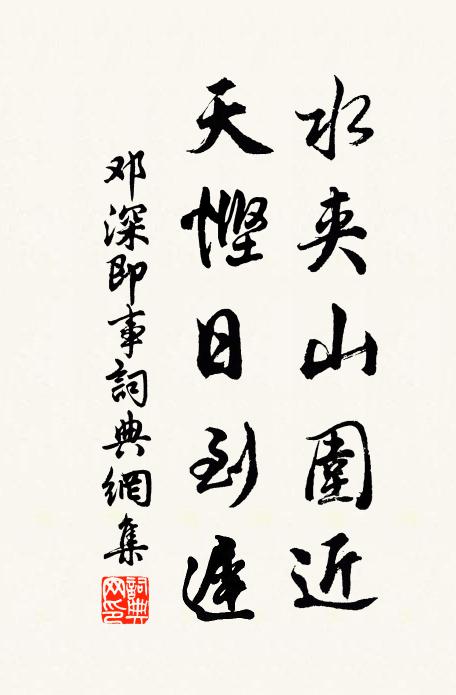 水夹山围近
天悭日到遲
邓深即事詞典網集
詞典网印